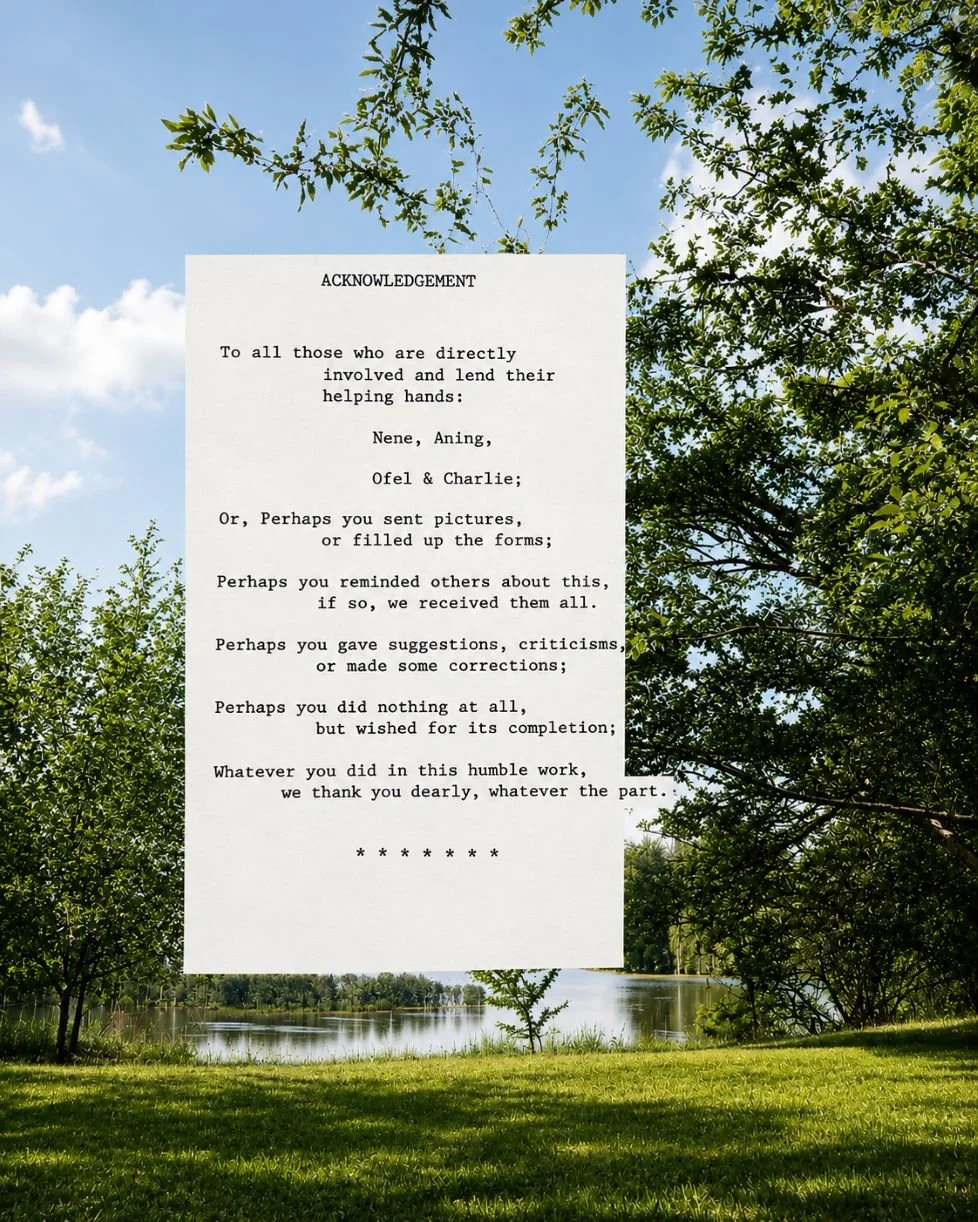 ACKNOWLEDGEMENT
To all those who are directly
involved and lend their
helping hands:
Nene, Aning,
Ofel & Charlie;
Or, Perhaps you sent pictures,
or filled up the forms;
Perhaps you reminded others about this,
if so, we received them all.
Perhaps you gave suggestions, criticisms,
or made some corrections;
Perhaps you did nothing at all,
but wished for its completion;
Whatever you did in this humble work,
we thank you dearly, whatever the part.
* * * * * * *